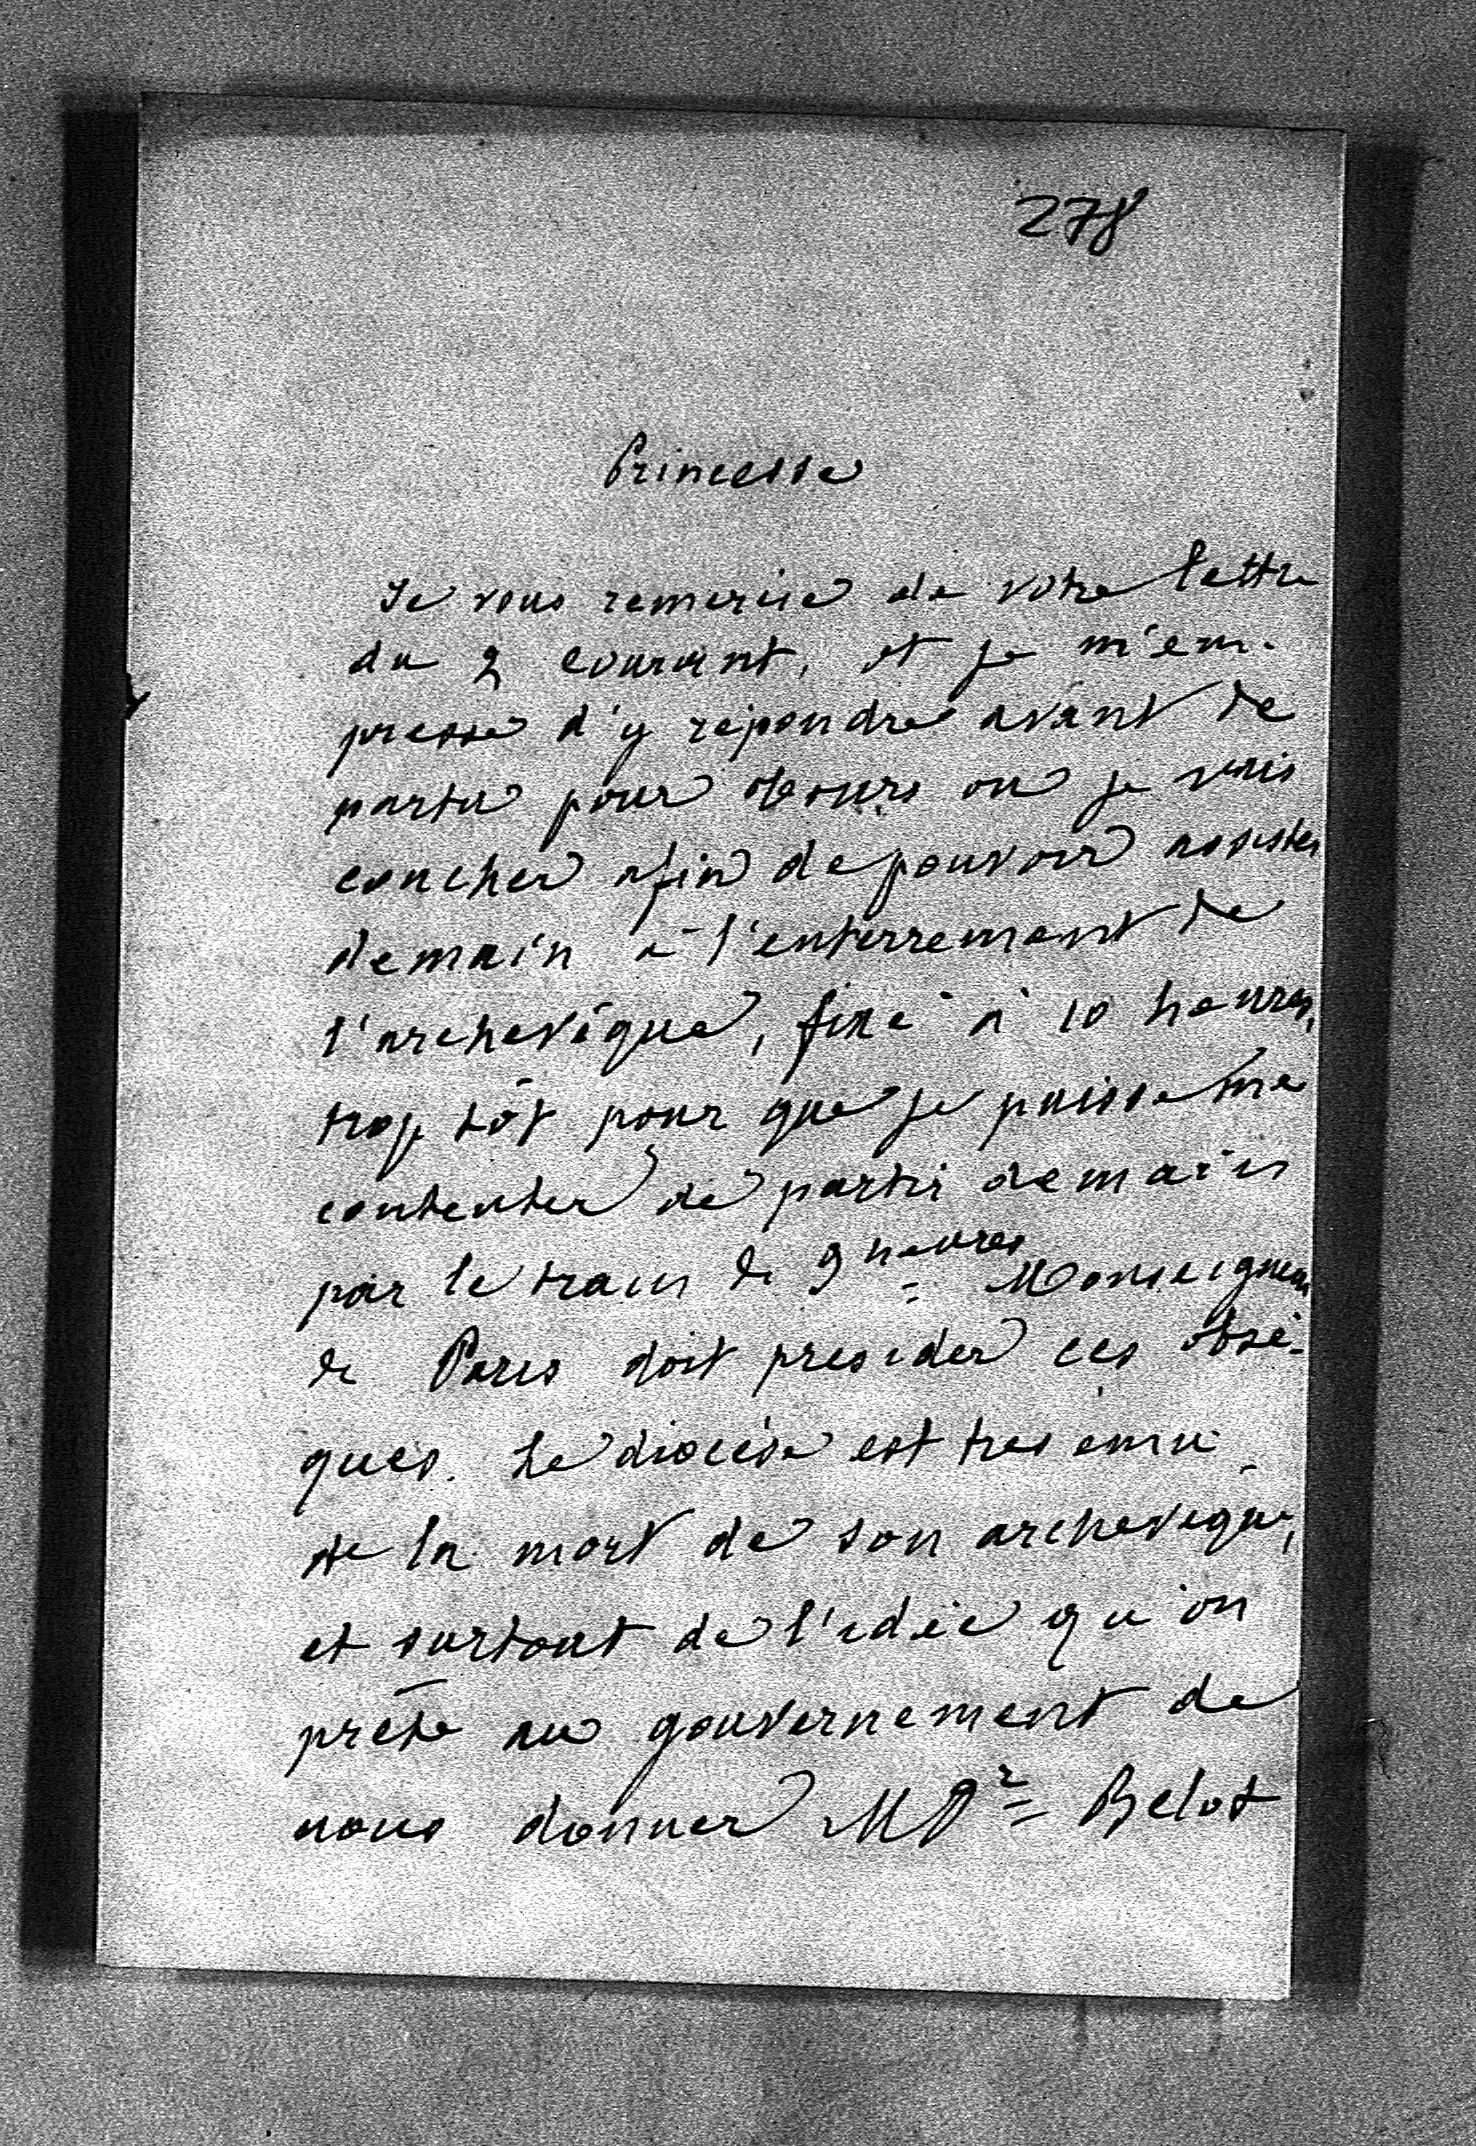 278
Princesse
Je vous remercie de votre lettre
du 2 courant, et je m'em-
presse d'y répondre avant de
partir pour Tours ou je vais
coucher afin de pouvoir assister
demain à l'enterrement de
l'archevêque, fixé à 10 heures,
trop tôt pour que je puisse me
contenter de partir demain
par le train de 9 heures Monseigneur
de Paris doit presider ces obsè-
ques. Le diocèse est tres ému
de la mort de son archevêque,
et surtout de l'idée qu'on
prête au gouvernement de
nous donner Mgr Belot